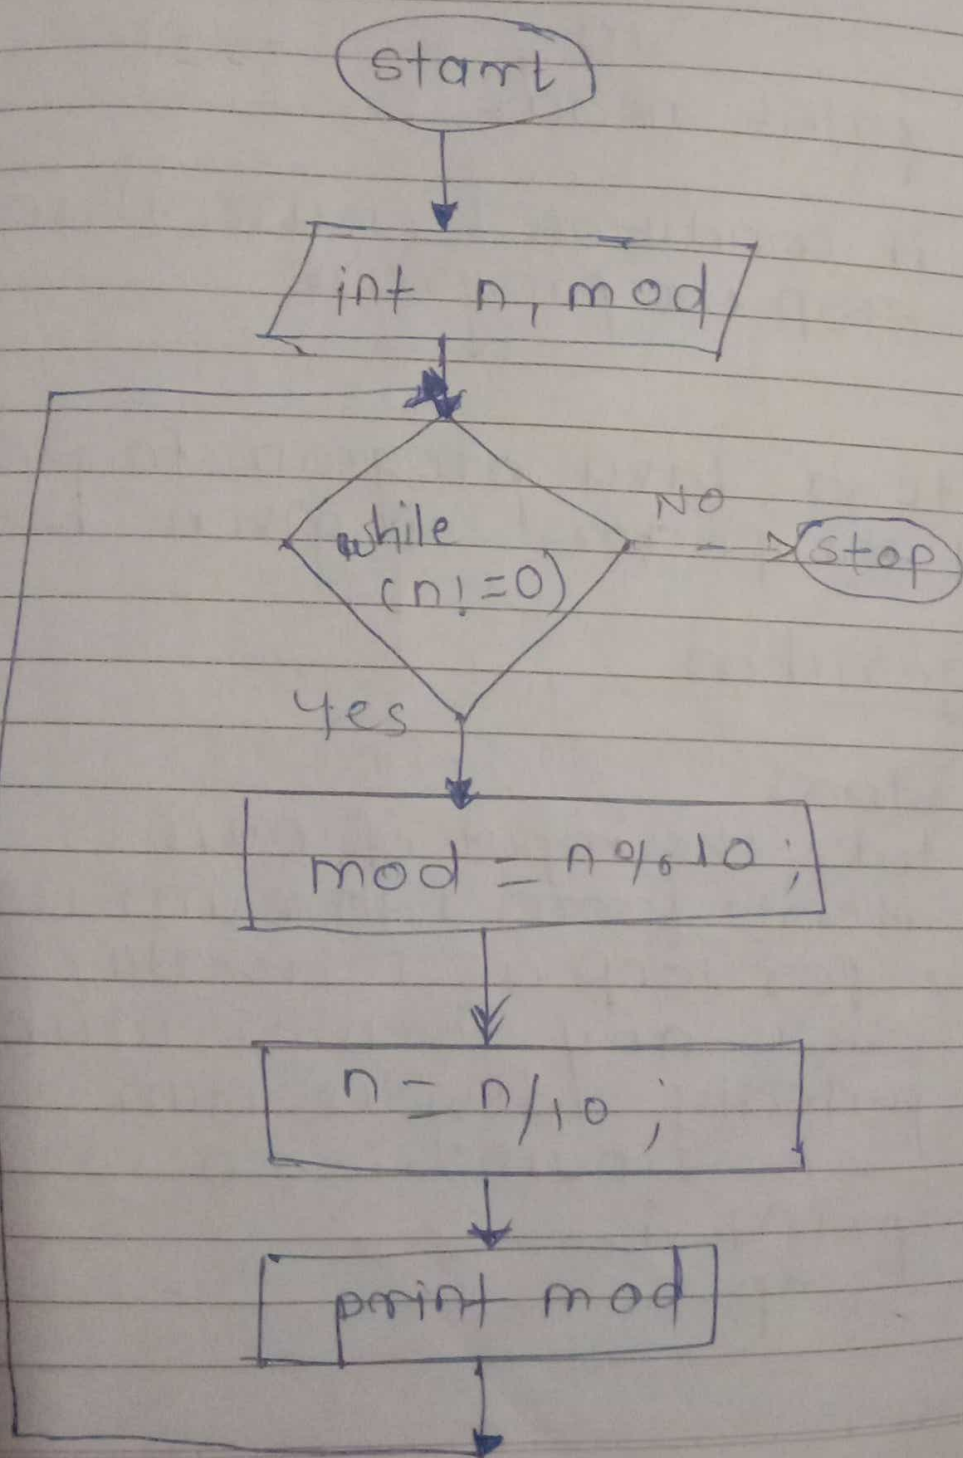 start
int n, mod
while
(n!=0)
NO
stop
Yes
mod = n%10;
n = n/10;
print mod